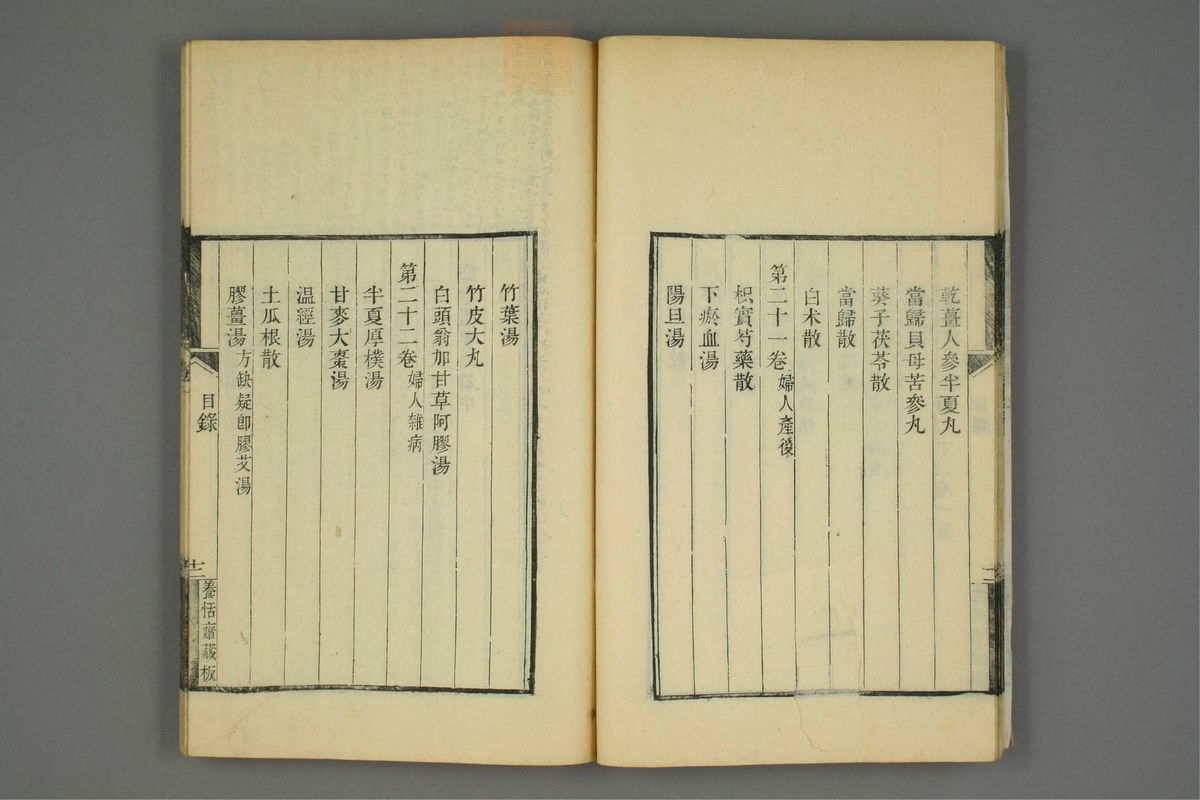 乾薑人參半夏丸
當歸貝母苦參丸
葵子茯苓散
當歸散
白术散
第二十一卷 婦人產後
枳實芍藥散
下瘀血湯
陽旦湯
竹葉湯
竹皮大丸
白頭翁加甘草阿膠湯
第二十二卷 婦人雜病
半夏厚樸湯
甘麥大棗湯
温經湯
土瓜根散
膠薑湯 方缺疑卽膠艾湯
目錄
十二
養恬齋藏板